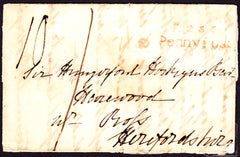 10 1
Penny Post
Sir Hungerford Hoskyns Bart
Harewood
nr Ross
Herefordshire